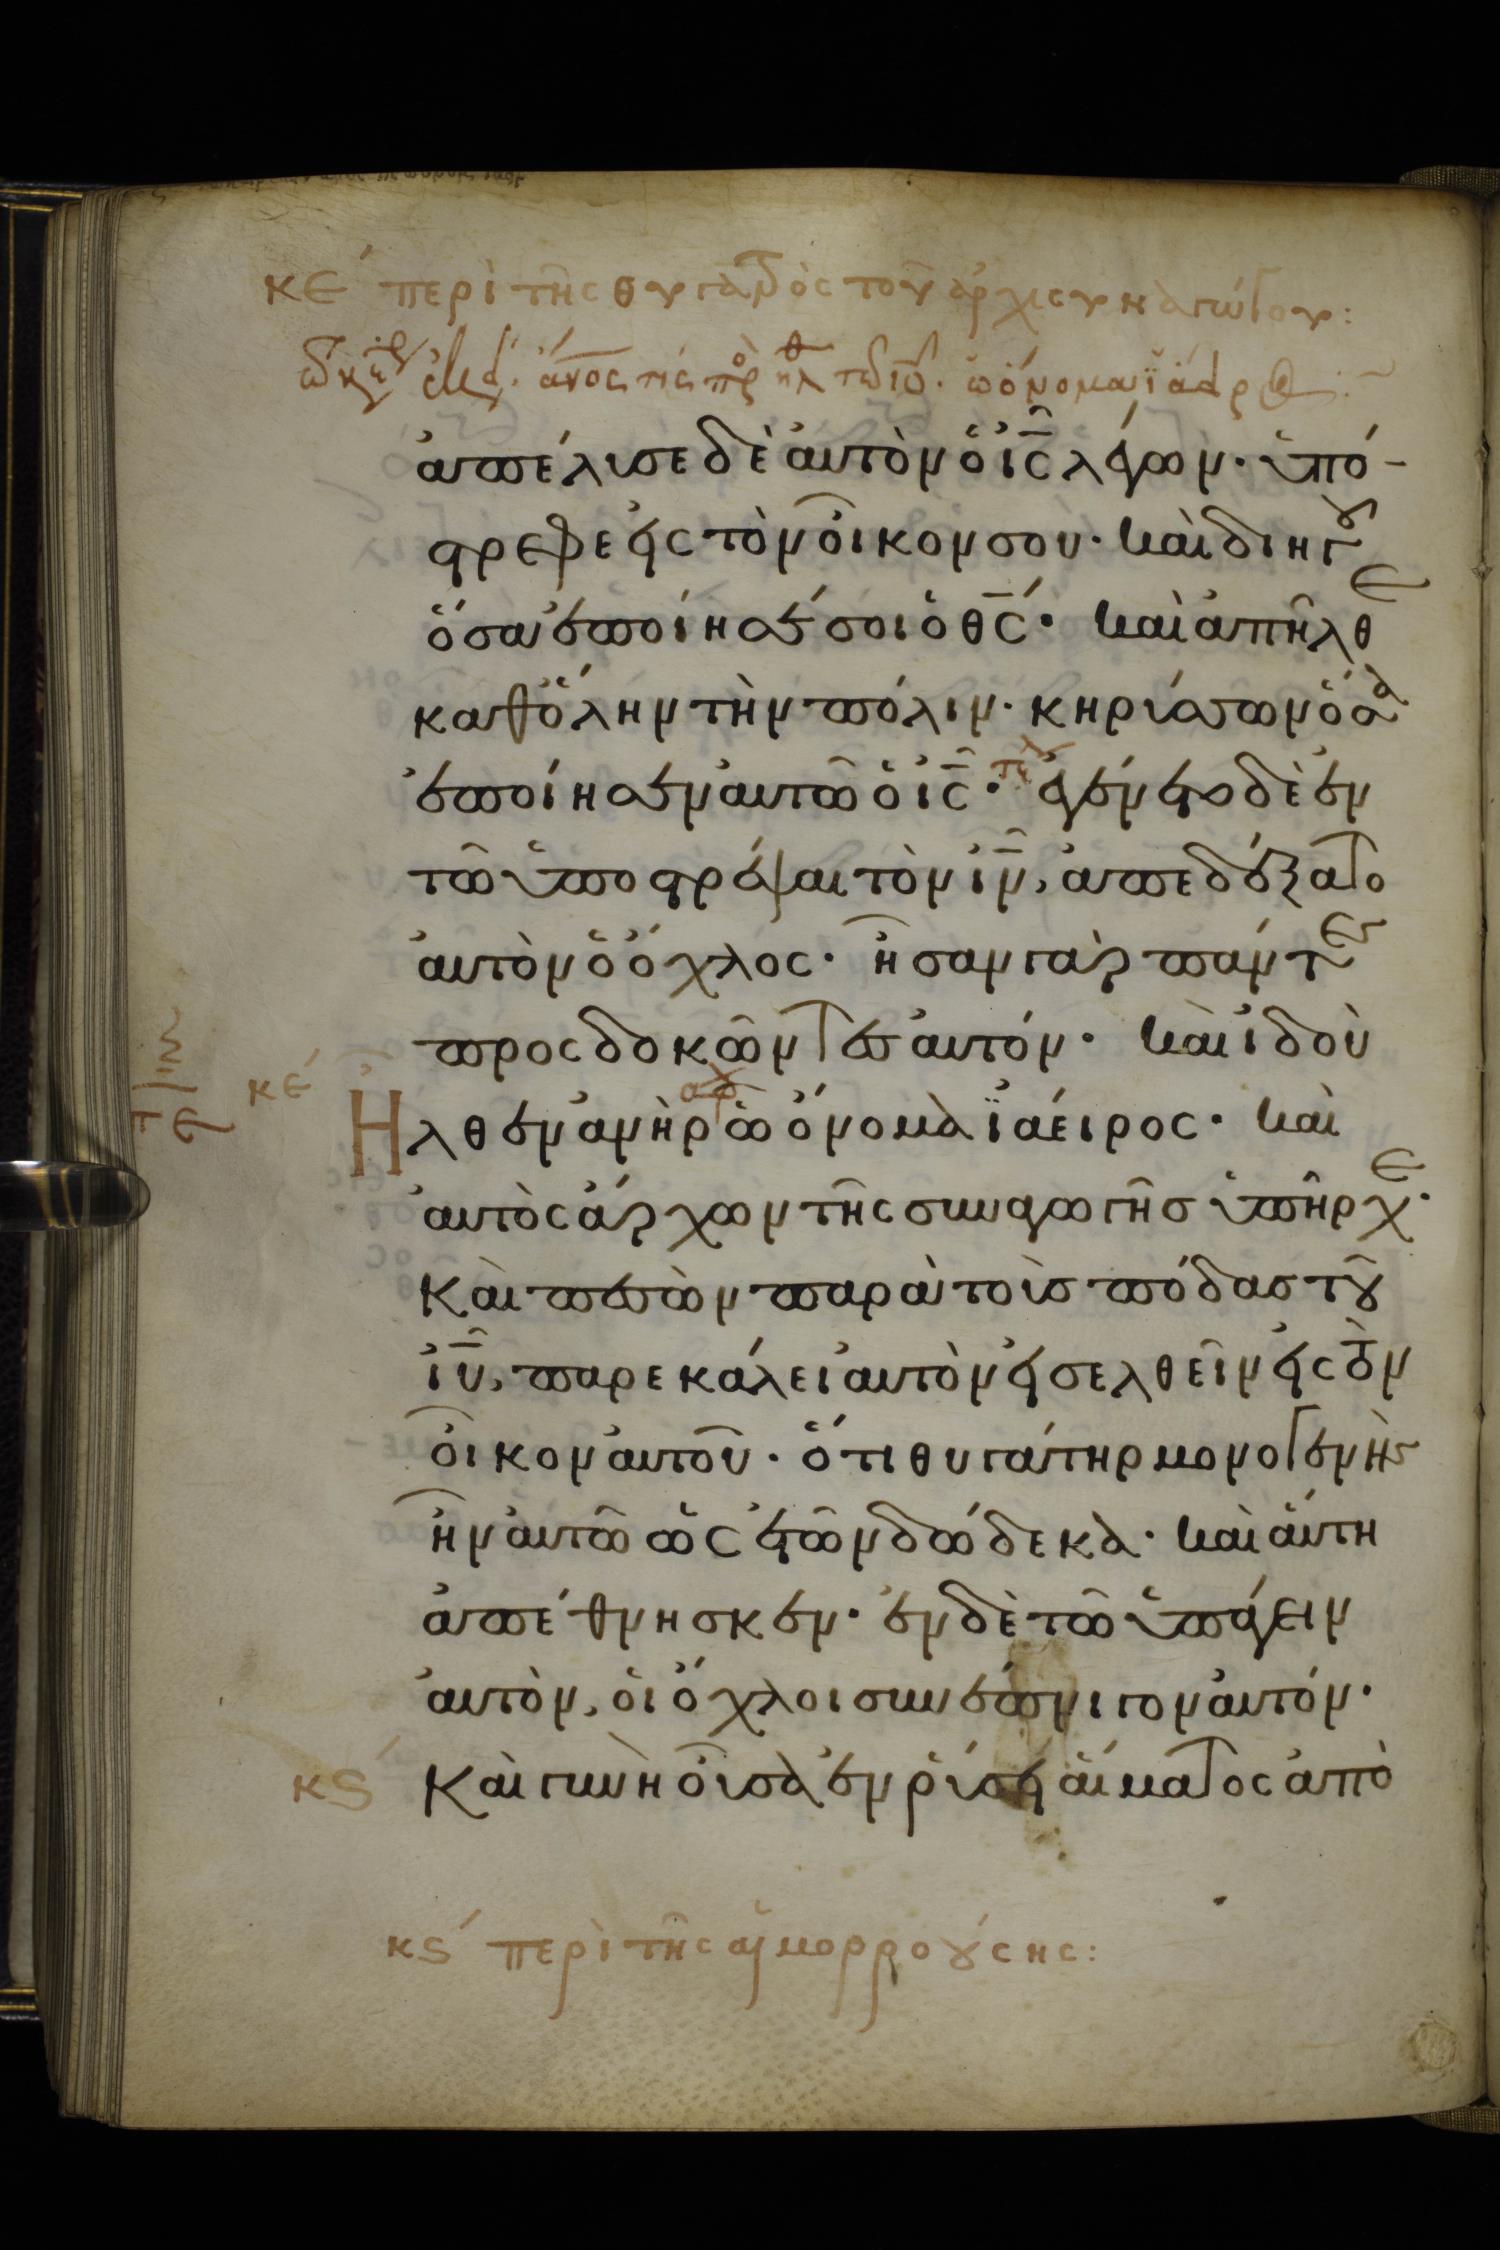 κε´ περὶ τῆς θυγατρὸς τοῦ ἀρχισυναγώγου:
ἄνος τίς τῶ ιῦ. ὧ ὄνομα ϊάειρος
ἀπέλυσε δὲ αὐτὸν ὁ ις λέγων· ὑπό-
στρεφε εἰς τὸν οἶκόν σου· καὶ διηγοῦ
ὅσα ἐποίησέ σοι ὁ θς· καὶ ἀπῆλθε
καθ' ὅλην τὴν πόλιν· κηρύσσων ὅσα
ἐποίησεν αὐτῶ ὁ ις· ἐγένετο δὲ ἐν
τῶ ὑποστρέψαι τὸν ιν, ἀπεδέξατο
αὐτὸν ὁ ὄχλος· ἦσαν γὰρ πάντες
προσδοκῶντες αὐτόν· καὶ ἰδοὺ
κε´ Ηλθεν ἀνὴρ ὧ ὄνομα ϊάειρος· καὶ
αὐτὸς ἄρχων τῆς συναγωγῆσ ὑπῆρχε·
Καὶ πεσὼν παρὰ τοὺσ πόδασ τοῦ
ιυ, παρεκάλει αὐτὸν εἰσελθεῖν εἰς τὸν
οἶκον αὐτοῦ· ὅτι θυγάτηρ μονογενὴς
ἦν αὐτῶ ὡς ἐτῶν δώδεκα· καὶ αὕτη
ἀπέθνησκεν· ἐν δὲ τῶ ὑπάγειν
αὐτὸν, οἱ ὄχλοι συνέπνιγον αὐτόν·
κς´ Καὶ γυνὴ οὖσα ἐν ῥύσει αἵματος ἀπὸ
κς´ περὶ τῆς αἱμορροούσης: